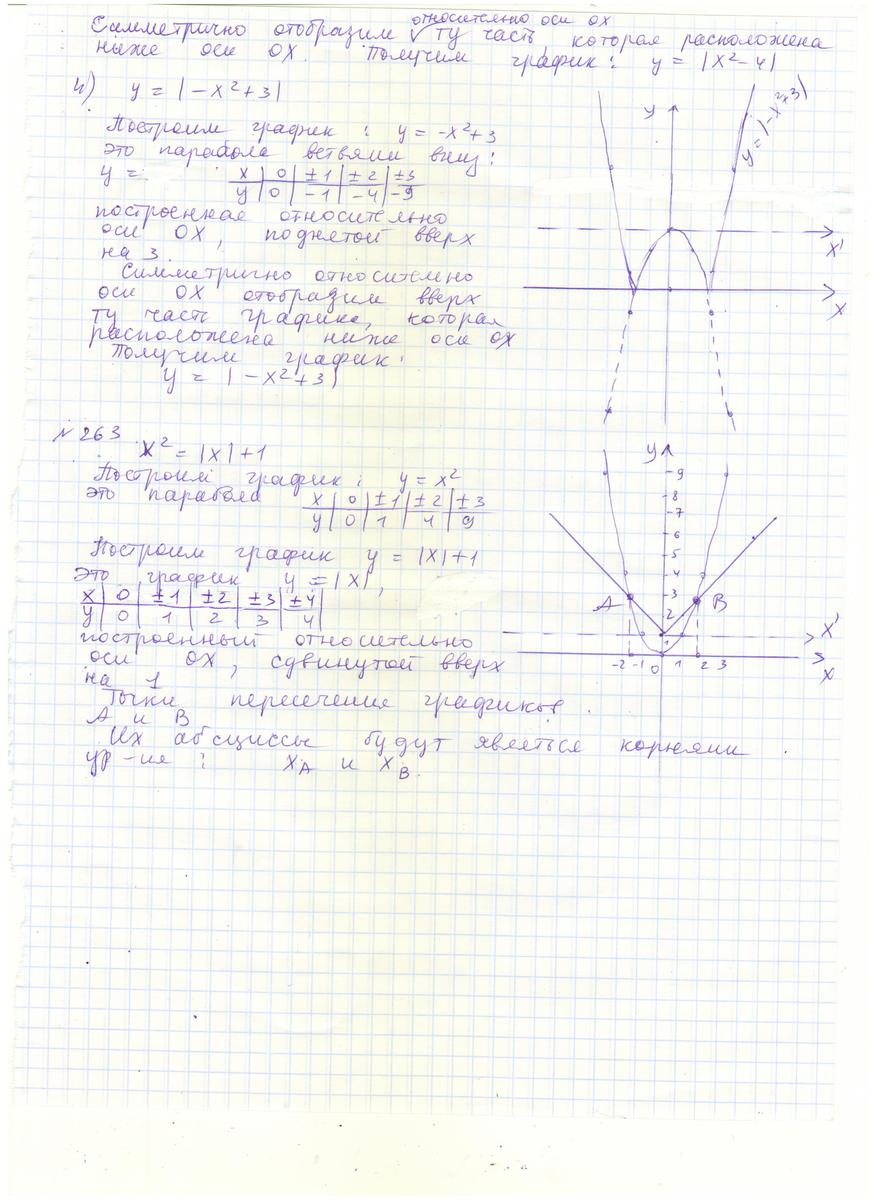 относительно оси ОХ
Симметрично отобразим √ ту часть, которая расположена
ниже оси ОХ. Получим график: y = |x²-4|
4) y = |-x²+3|
Построим график: y = -x²+3
это парабола ветвями вниз:
y = x 0 ±1 ±2 ±3
y 0 -1 -4 -9
построенная относительно
оси ОХ, поднятой вверх
на 3.
Симметрично относительно
оси ОХ отобразим вверх
ту часть графика, которая
расположена ниже оси ОХ
Получим график:
y = |-x²+3|
y
y=|-x²+3|
x'
x
№263
x² = |x|+1
Построим график: y = x²
это парабола
x 0 ±1 ±2 ±3
y 0 1 4 9
Построим график y = |x|+1
Это график y = |x|,
x 0 ±1 ±2 ±3 ±4
y 0 1 2 3 4
построенный относительно
оси ОХ, сдвинутой вверх
на 1
Точки пересечения графиков.
А и В
Их абсциссы будут являться корнями
ур-ия: x_A и x_B.
y
9
8
7
6
5
4
3
2
1
A B
x'
-2 -1 0 1 2 3
x